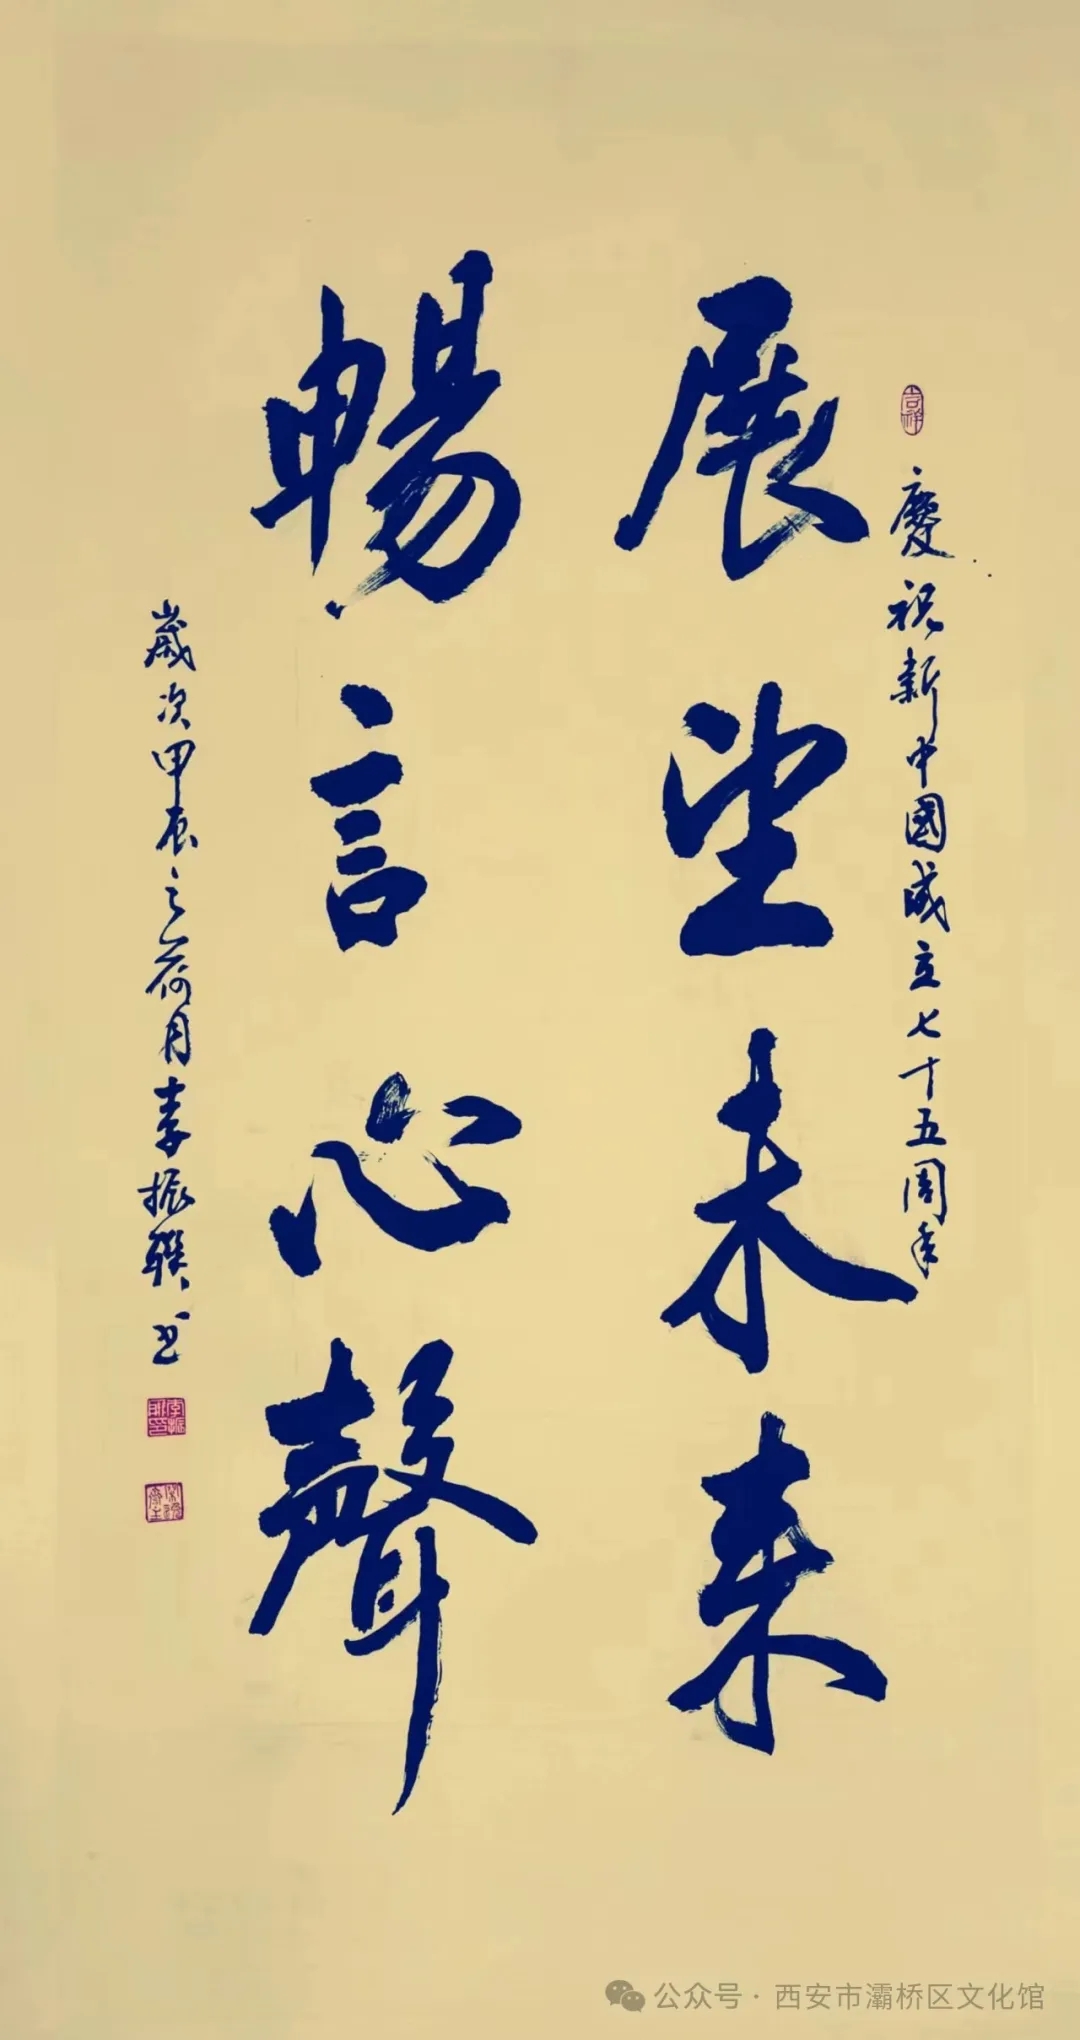 慶祝新中國成立七十五周年
展望未来
暢言心聲
歲次甲辰之荷月李振聯书
公众号·西安市灞桥区文化馆